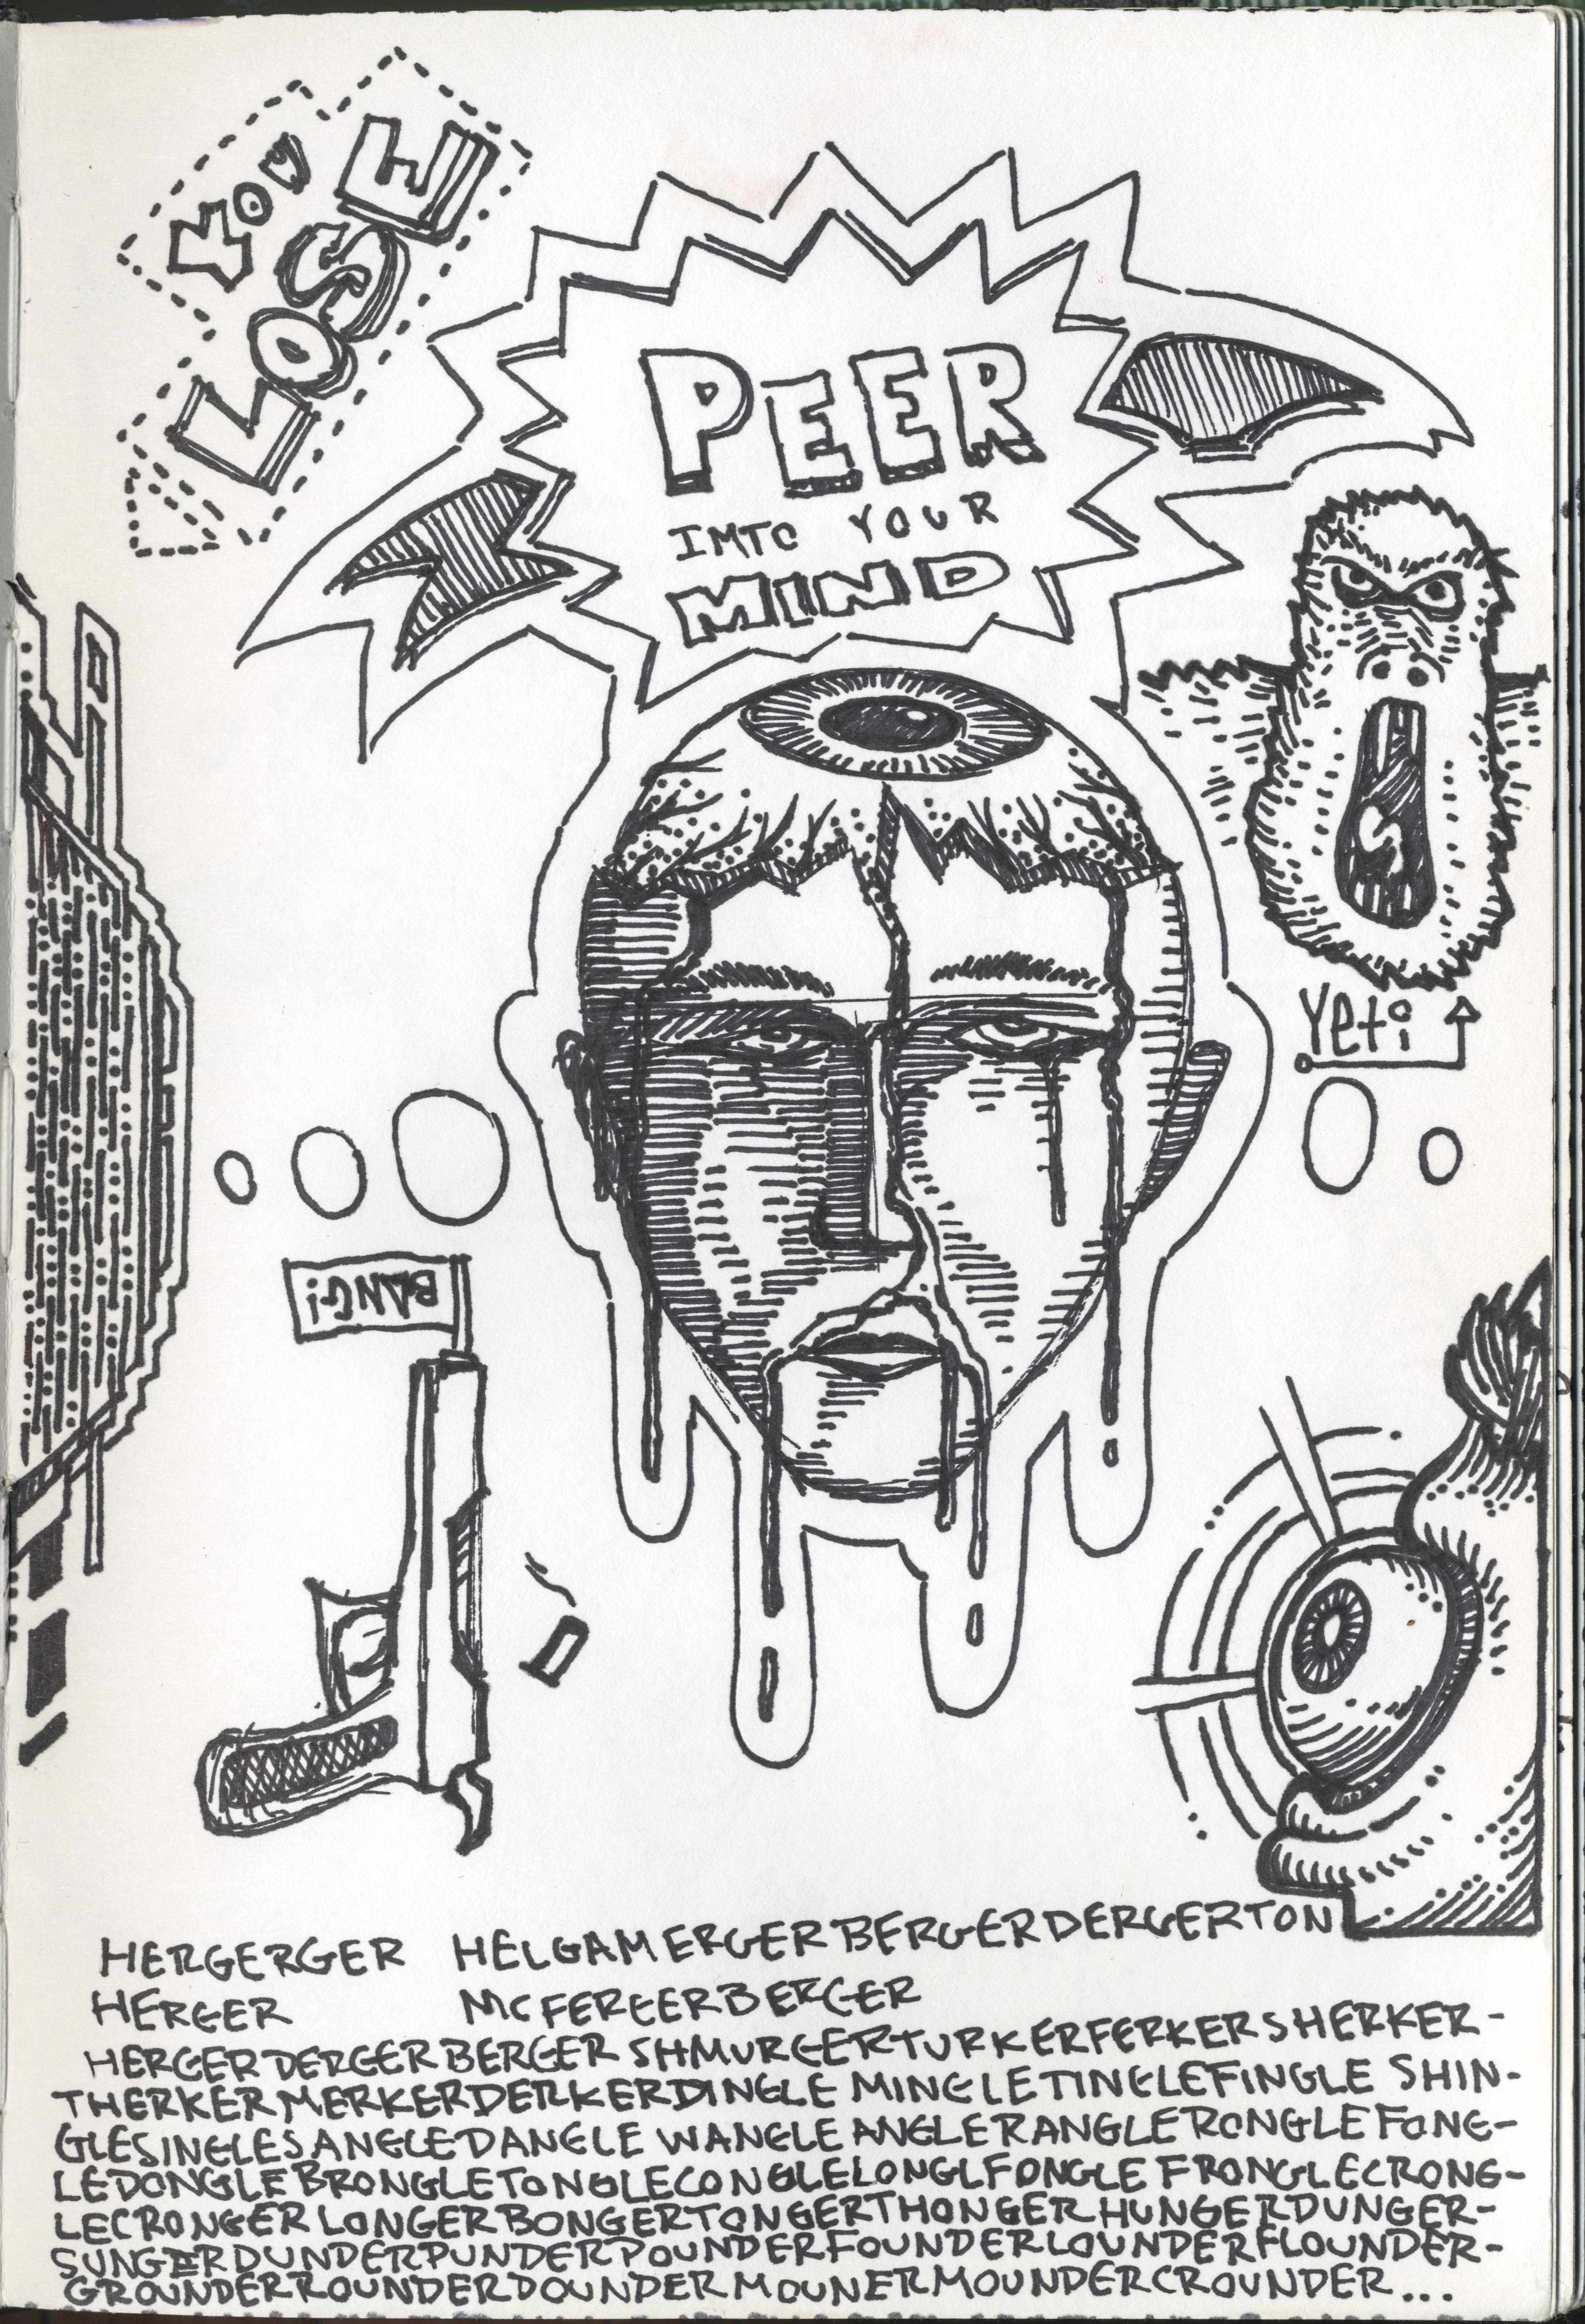 YOU
LOSE
PEER
IMTO YOUR
MIND
Yeti
BANG!
HERGERGER HELGAMERGERBERGERDERGERTON
HERGER MCFERGERBERGER
HERGERDERGERBERGERSHMURGERTURKERFERKERSHERKER-
THERKERMERKERDERKERDINGLE MINGLETINGLEFINGLE SHIN-
GLESINGLESANGLEDANGLE WANGLE ANGLERANGLERONGLEFONG-
LEDONGLEBRONGLETONGLECONGLELONGLFONGLE FRONGLECRONG-
LECRONGERLONGERBONGERTONGERTHONGERHUNGERDUNGER-
SUNGERDUNDERPUNDERPOUNDERFOUNDERLOUNDERFLOUNDER-
GROUNDERROUNDERDOUNDERMOUNERMOUNDERCROUNDER...